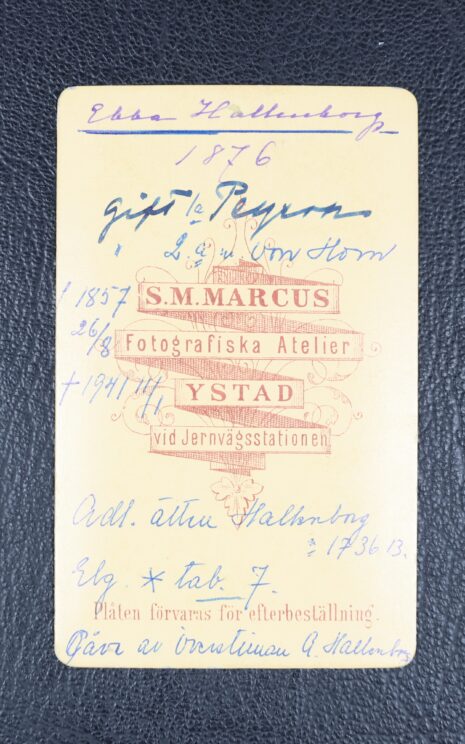 Ebba Hallenborg
1876
gift 1a Peyron
" 2a m von Horn
S.M.MARCUS
1857
Fotografiska Atelier
26/8
YSTAD
† 1941 11/1
vid Jernvägsstationen
Adl. ätten Hallenborg
1736 B.
Elg. * tab. 7.
Plåten förvaras för efterbeställning.
Gåva av överstinnan A. Hallenborg